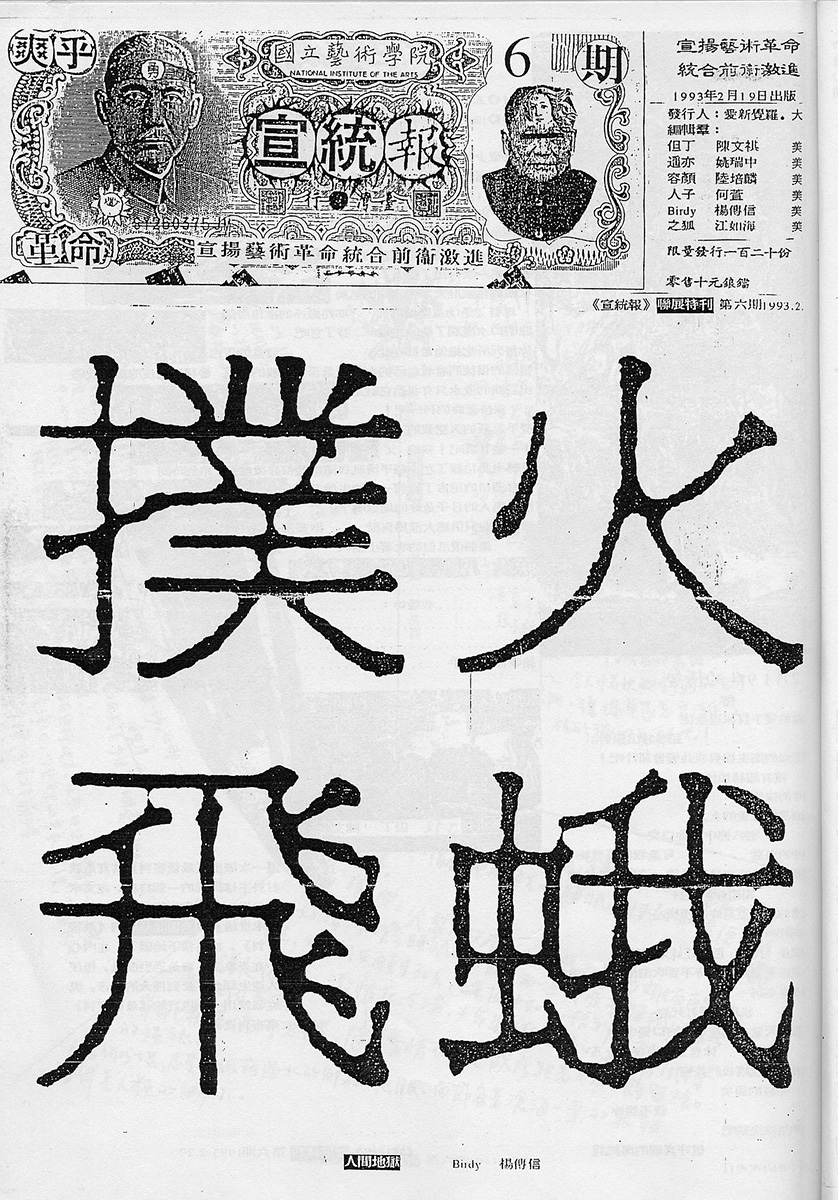 爽乎
國立藝術學院
NATIONAL INSTITUTE OF THE ARTS
宣統報
行
革命
宣揚藝術革命統合前衛激進
6期
宣揚藝術革命
統合前衛激進
1993年2月19日出版
發行人：愛新覺羅。大
編輯羣：
但丁 陳文祺 美
遁亦 姚瑞中 美
容顏 陸培麟 美
人子 何萱 美
Birdy 楊傳信 美
之狐 江如海 美
限量發行一百二十份
零售十元銀鐺
《宣統報》聯展特刊 第六期1993.2.
撲火
飛蛾
人間地獄 Birdy 楊傳信